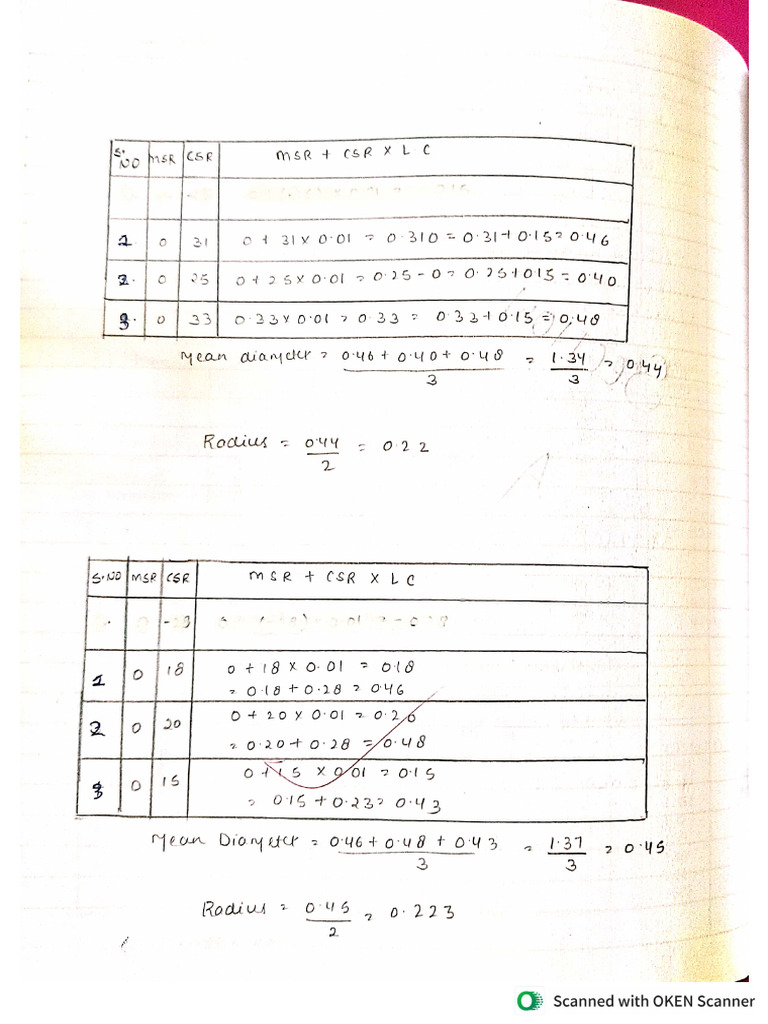 S.NO MSR CSR MSR + CSR X L C
1 0 31 0 + 31 X 0.01 = 0.310 = 0.31 + 0.15 = 0.46
2. 0 25 0 + 25 X 0.01 = 0.25 - 0 = 0.25 + 0.15 = 0.40
3. 0 33 0.33 X 0.01 = 0.33 = 0.33 + 0.15 = 0.48
Mean diameter = 0.46 + 0.40 + 0.48 / 3 = 1.34 / 3 = 0.44
Radius = 0.44 / 2 = 0.22
S.NO MSR CSR MSR + CSR X L C
1 0 18 0 + 18 X 0.01 = 0.18
= 0.18 + 0.28 = 0.46
2 0 20 0 + 20 X 0.01 = 0.20
= 0.20 + 0.28 = 0.48
3 0 15 0 + 15 X 0.01 = 0.15
= 0.15 + 0.23 = 0.43
Mean Diameter = 0.46 + 0.48 + 0.43 / 3 = 1.37 / 3 = 0.45
Radius = 0.45 / 2 = 0.223
Scanned with OKEN Scanner